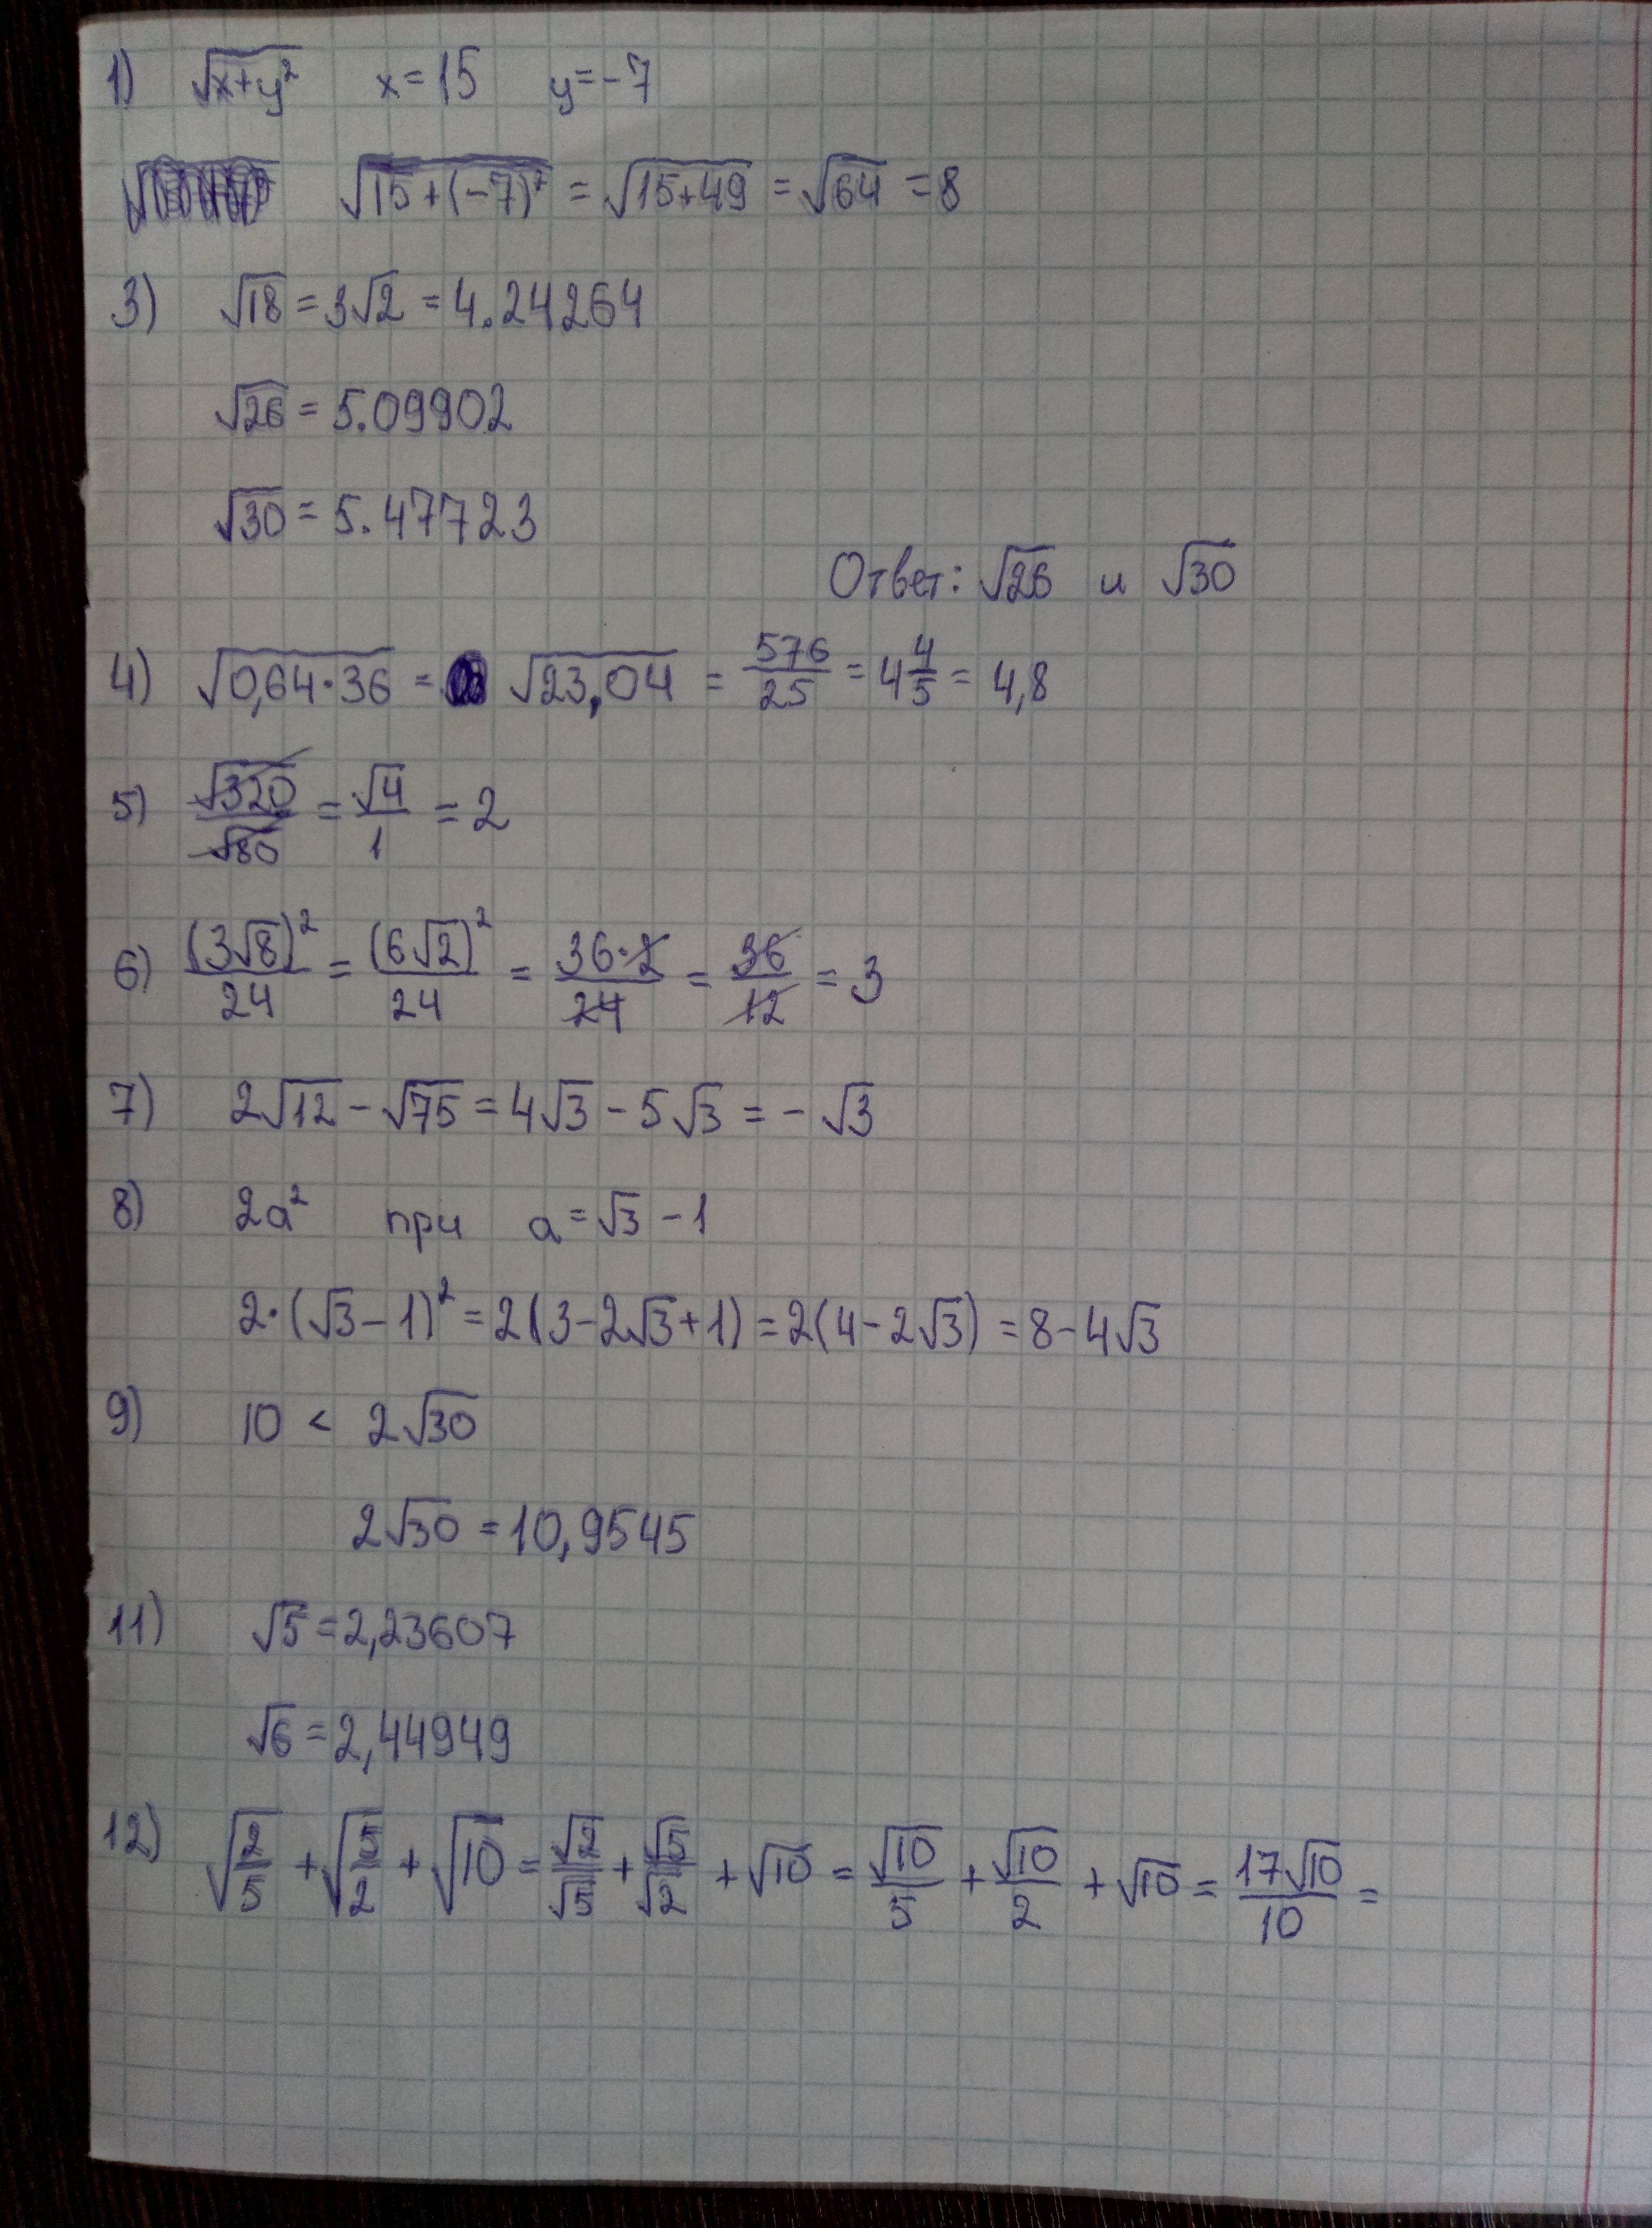 1) √x+y² x=15 y=-7
√15+(-7)² = √15+49 = √64 = 8
3) √18 = 3√2 = 4.24264
√26 = 5.09902
√30 = 5.47723
Ответ: √26 и √30
4) √0,64·36 = √23,04 = 576/25 = 4 4/5 = 4,8
5) √320/√80 = √4/1 = 2
6) (3√8)²/24 = (6√2)²/24 = 36·2/24 = 36/12 = 3
7) 2√12 - √75 = 4√3 - 5√3 = -√3
8) 2a² при a=√3-1
2·(√3-1)² = 2(3-2√3+1) = 2(4-2√3) = 8-4√3
9) 10 < 2√30
2√30 = 10,9545
11) √5 = 2,23607
√6 = 2,44949
12) √2/5 + √5/2 + √10 = √2/√5 + √5/√2 + √10 = √10/5 + √10/2 + √10 = 17√10/10 =